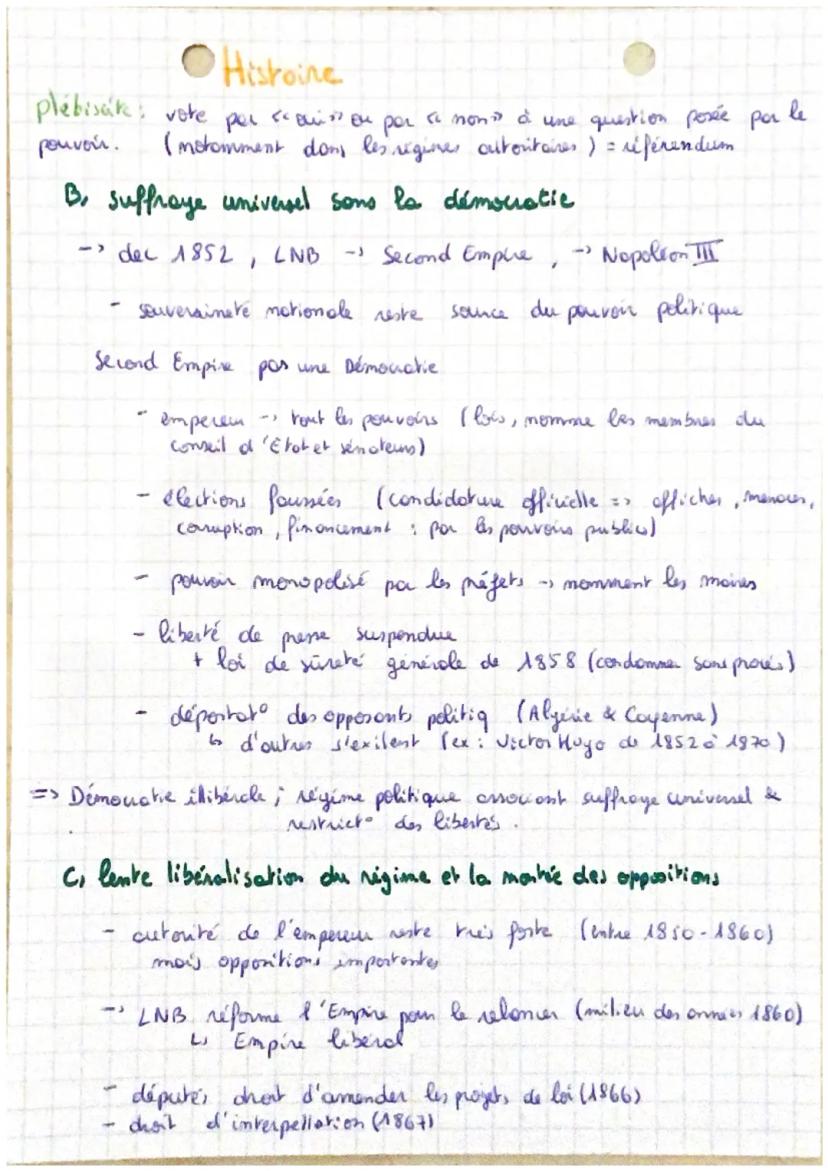 Histoire
plébiscite : vote par << oui >> ou par << non >> à une question posée par le
pouvoir. (notamment dans les régimes autoritaires) = référendum
B, suffrage universel sans la démocratie
-> dec 1852, LNB -> Second Empire, -> Napoléon III
- souveraineté nationale reste source du pouvoir politique
Second Empire pas une Démocratie
- empereur -> tout les pouvoirs (lois, nomme les membres du
conseil d'État et sénateurs)
- élections faussées (candidature officielle => affiches, menaces,
corruption, financement : par les pouvoirs publics)
- pouvoir monopolisé par les préfets -> nomment les maires
- liberté de presse suspendue
+ loi de sûreté générale de 1858 (condamner sans procès)
- déportat° des opposants politiq (Algérie & Cayenne)
↳ d'autres s'exilent (ex : Victor Hugo de 1852 à 1870)
=> Démocratie illibérale ; régime politique associant suffrage universel &
restrict° des libertés.
C, lente libéralisation du régime et la montée des oppositions
- autorité de l'empereur reste très forte (entre 1850-1860)
mais oppositions importantes
-> LNB réforme l'Empire pour le relancer (milieu des années 1860)
↳ Empire libéral
- députés droit d'amender les projets de loi (1866)
- droit d'interpellation (1867)